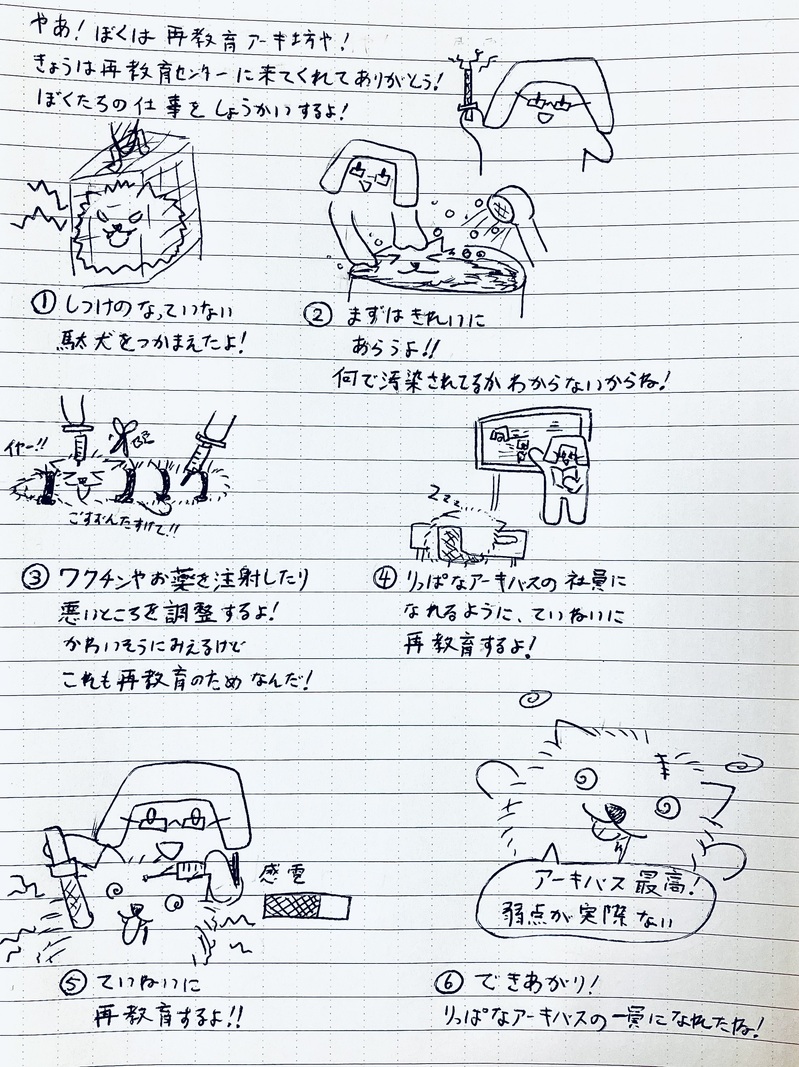 やあ！ぼくは再教育アーキ坊や！
きょうは再教育センターに来てくれてありがとう！
ぼくたちの仕事をしょうかいするよ！
① しつけのなっていない
駄犬をつかまえたよ！
② まずはきれいに
あらうよ！！
何で汚染されてるかわからないからね！
イヤー！！
ごすずんたすけて！！
③ ワクチンやお薬を注射したり
悪いところを調整するよ！
かわいそうにみえるけど
これも再教育のためなんだ！
Zzzz
④ りっぱなアーキバスの社員に
なれるように、ていねいに
再教育するよ！
感電
⑤ ていねいに
再教育するよ！！
アーキバス最高！
弱点が実際ない
⑥ できあがり！
りっぱなアーキバスの一員になれたね！